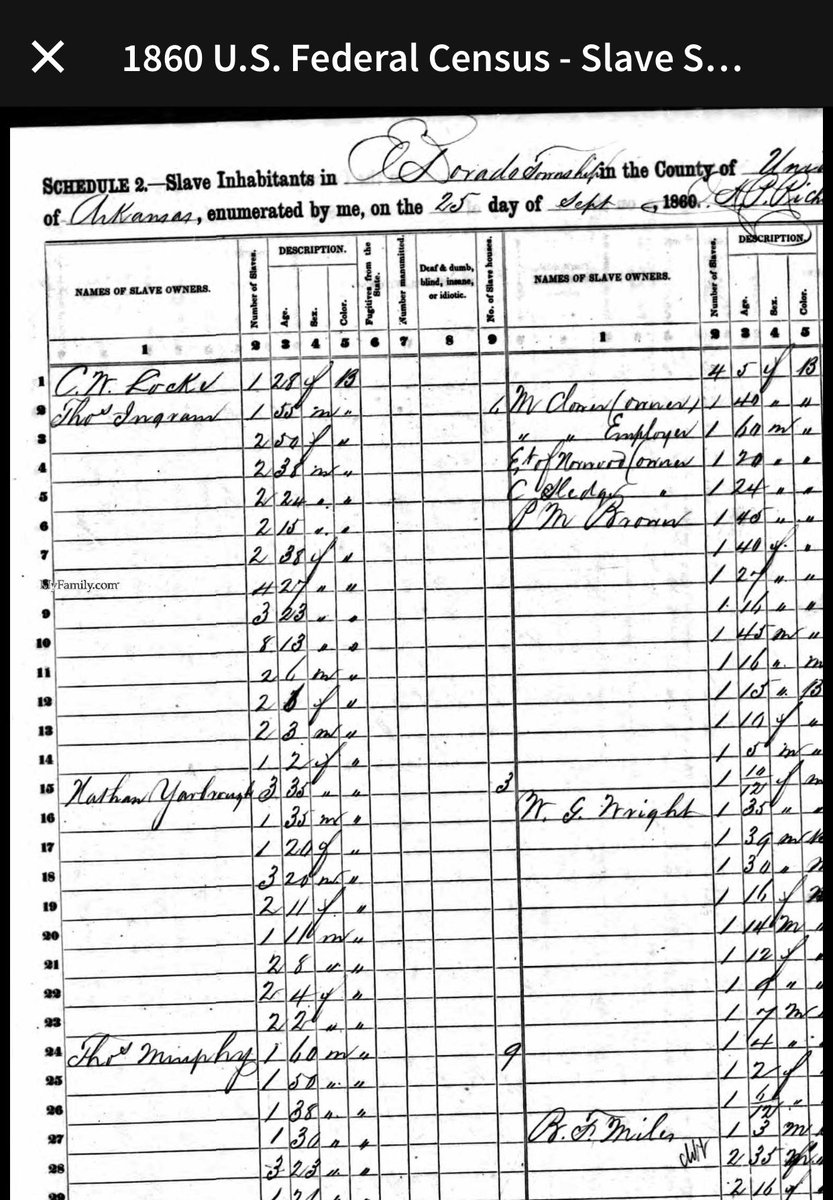 1860 U.S. Federal Census - Slave S...
SCHEDULE 2.—Slave Inhabitants in El Dorado Township in the County of
of Arkansas, enumerated by me, on the 25 day of Sept, 1860.
NAMES OF SLAVE OWNERS. Number of Slaves. DESCRIPTION. Age. Sex. Color. Fugitives from the State. Number manumitted. Deaf & dumb, blind, insane, or idiotic. No. of Slave houses. NAMES OF SLAVE OWNERS. Number of Slaves. DESCRIPTION. Age. Sex. Color.
1 2 3 4 5 6 7 8 9 1 2 3 4 5
1 C. W. Locke 1 28 f B 4 5 f B
2 Thos Ingram 1 55 m " 6 M (owner) 1 40 " "
3 2 50 f " " " Employer 1 60 m "
4 2 38 m " Est of Norwood (owner 1 20 " "
5 2 24 " " C Sledge " 1 24 " "
6 2 15 " " P M Brown 1 45 " "
7 2 38 f " 1 40 f "
MyFamily.com 4 27 " " 1 27 " "
9 3 23 " " 1 16 " "
10 8 13 " " 1 45 m "
11 2 6 m " 1 16 " m
12 2 f " 1 15 " B
13 2 3 m " 1 10 f "
14 1 2 f " 1 5 m "
15 Nathan Yarbrough 3 35 " " 3 1 10/12 f m
16 1 35 m " W. G. Wright 1 35 " "
17 1 20 f " 1 39 m
18 3 20 m " 1 30 "
19 2 11 f " 1 16 f
20 1 11 m " 1 14 m
21 2 8 " " 1 12 f
22 2 4 f " 1 9 "
23 2 2 " " 1 7 m
24 Thos Murphy 1 60 m " 9 1 4 "
25 1 50 " " 1 2 f
26 1 38 " " 1 6/12 "
27 1 30 " " B. F. Miles 1 3 m
28 3 23 " " 2 35 m
29 1 21 " 2 16 f